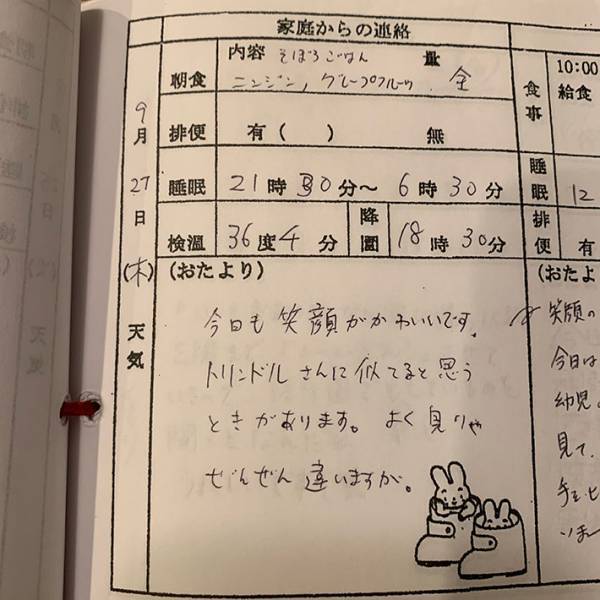 家庭からの連絡
内容 そぼろごはん 量
朝食 ニンジン、グレープフルーツ 全
9月27日(木)
天気
排便 有( ) 無
睡眠 21時30分～6時30分
検温 36度4分 降園 18時30分
(おたより)
今日も笑顔がかわいいです。
トリンドルさんに似てると思う
ときがあります。よく見りゃ
ぜんぜん違いますが。
10:00
食事 給食
睡眠 12
排便 有
(おたよ
笑顔の
今日は
幼児
見て、